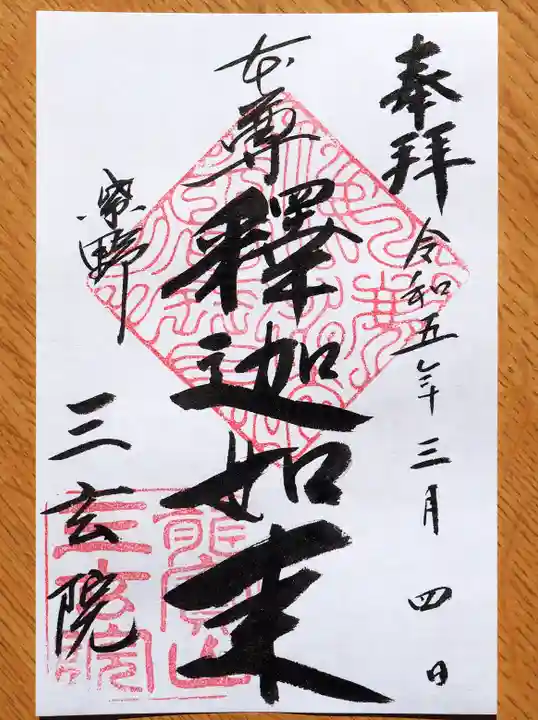 奉拝
令和五年三月四日
本尊
釋迦如来
紫野
三玄院